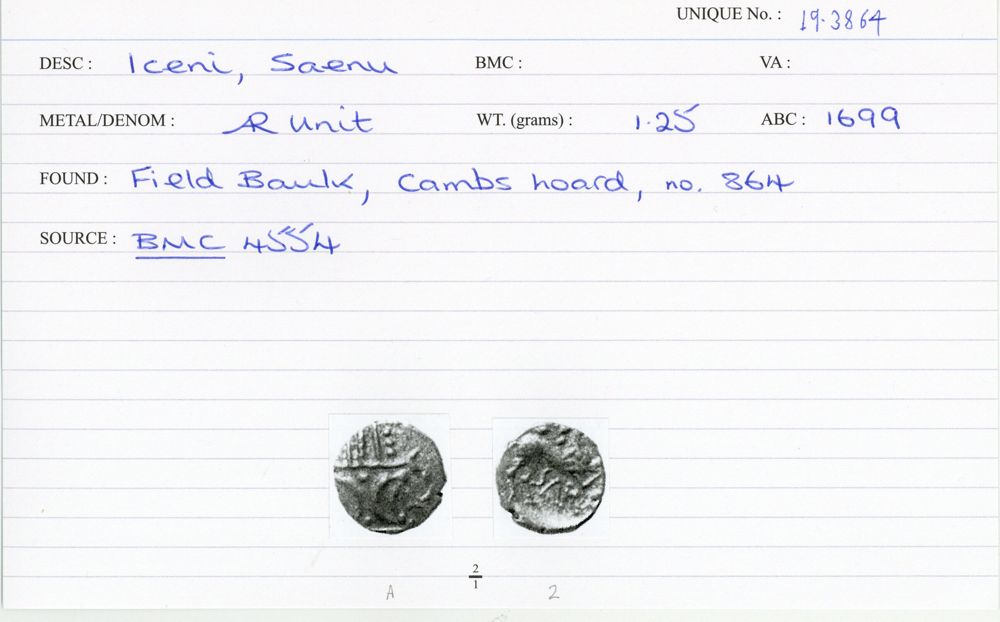 UNIQUE No. : 19.3864
DESC : Iceni, Saenu BMC : VA :
METAL/DENOM : AR Unit WT. (grams) : 1.25 ABC : 1699
FOUND : Field Baulk, Cambs hoard, no. 864
SOURCE : BMC 4554
2
1
A 2